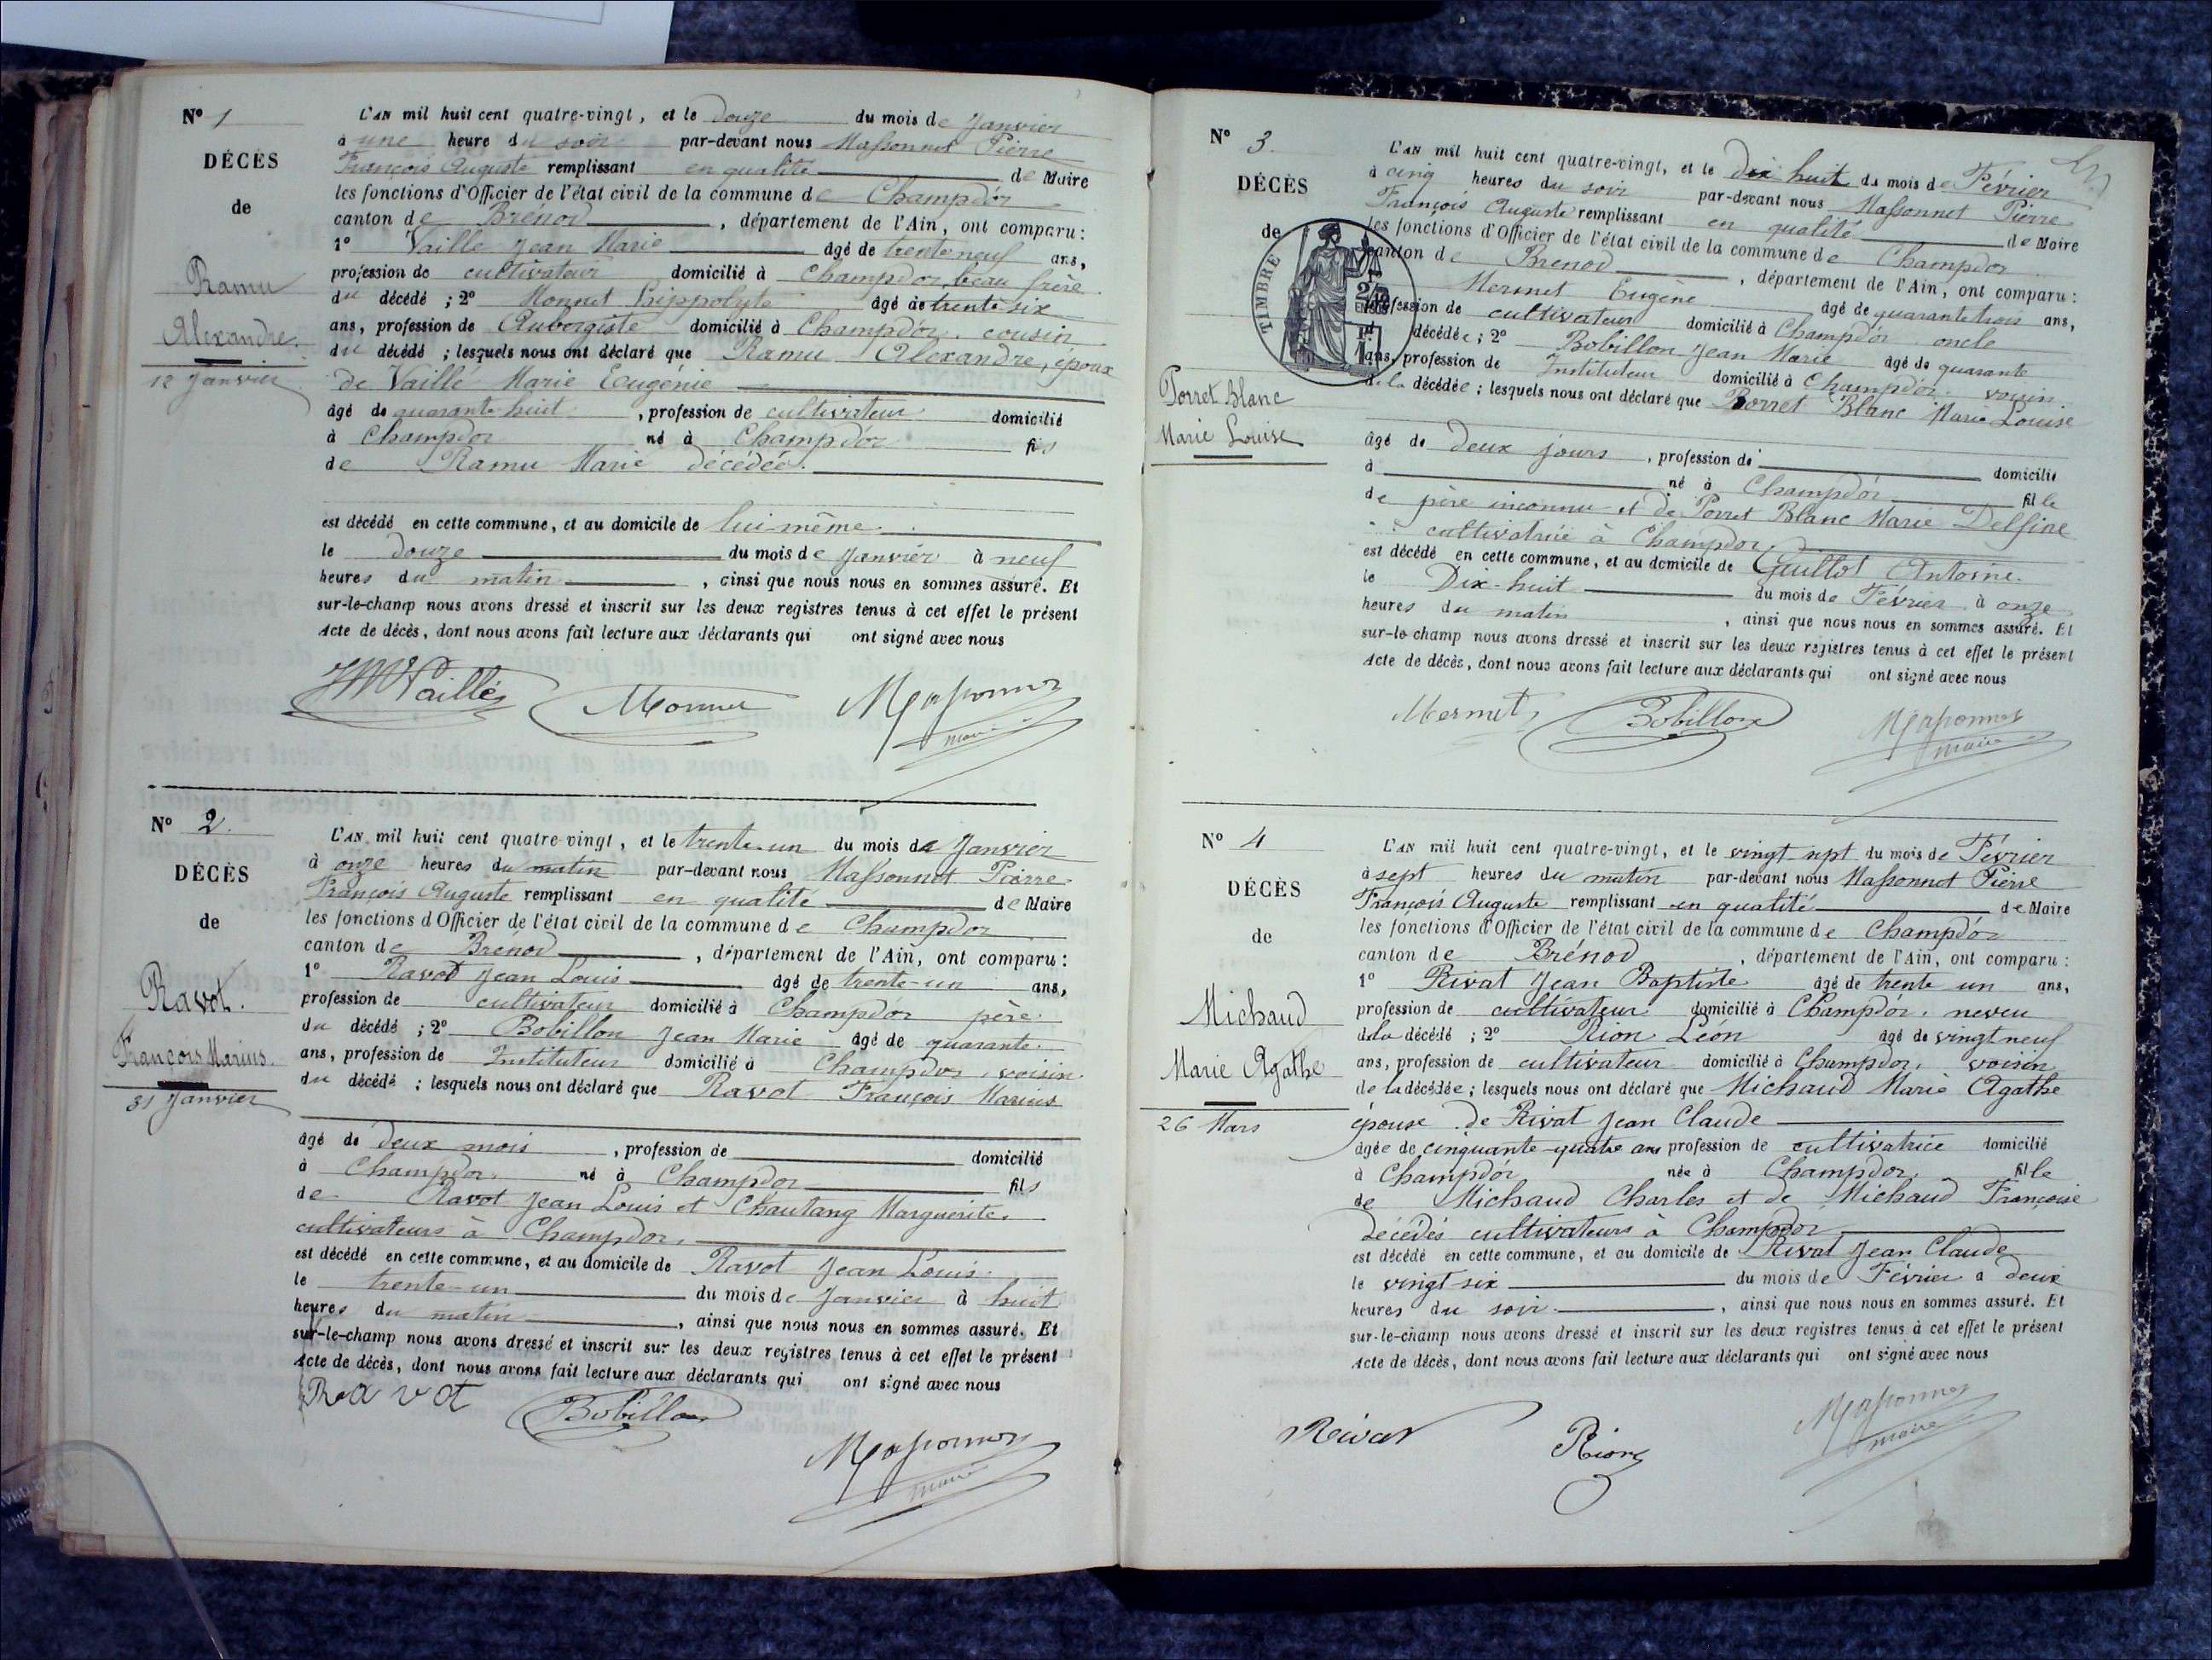 N° 1
DÉCÈS
de
Ramu
Alexandre.
12 Janvier
L'AN mil huit cent quatre-vingt, et le douze du mois de Janvier
à une heure du soir par-devant nous Massonnet Pierre
François Auguste remplissant en qualité de Maire
les fonctions d'Officier de l'état civil de la commune de Champdor
canton de Brénod, département de l'Ain, ont comparu :
1° Vaillé Jean Marie âgé de trente neuf ans,
profession de cultivateur domicilié à Champdor, beau frère
du décédé ; 2° Monnet Hippolyte âgé de trente-six
ans, profession de Aubergiste domicilié à Champdor, cousin
du décédé ; lesquels nous ont déclaré que Ramu Alexandre, époux
de Vaillé Marie Eugénie
âgé de quarante huit, profession de cultivateur domicilié
à Champdor né à Champdor fils
de Ramu Marie décédée.
est décédé en cette commune, et au domicile de lui-même.
le douze du mois de Janvier à neuf
heures du matin, ainsi que nous nous en sommes assuré. Et
sur-le-champ nous avons dressé et inscrit sur les deux registres tenus à cet effet le présent
Acte de décès, dont nous avons fait lecture aux déclarants qui ont signé avec nous
JM Vaillé Monnet Massonnet
maire
N° 2.
DÉCÈS
de
Ravot.
François Marius.
31 Janvier
L'AN mil huit cent quatre-vingt, et le trente-un du mois de Janvier
à onze heures du matin par-devant nous Massonnet Pierre
François Auguste remplissant en qualité de Maire
les fonctions d'Officier de l'état civil de la commune de Champdor
canton de Brénod, département de l'Ain, ont comparu :
1° Ravot Jean Louis âgé de trente-un ans,
profession de cultivateur domicilié à Champdor père
du décédé ; 2° Bobillon Jean Marie âgé de quarante
ans, profession de Instituteur domicilié à Champdor, voisin
du décédé ; lesquels nous ont déclaré que Ravot François Marius
âgé de deux mois, profession de domicilié
à Champdor, né à Champdor fils
de Ravot Jean Louis et Chautang Marguerite,
cultivateurs à Champdor,
est décédé en cette commune, et au domicile de Ravot Jean Louis
le trente-un du mois de Janvier à huit
heures du matin, ainsi que nous nous en sommes assuré. Et
sur-le-champ nous avons dressé et inscrit sur les deux registres tenus à cet effet le présent
Acte de décès, dont nous avons fait lecture aux déclarants qui ont signé avec nous
Ravot Bobillon
Massonnet
maire
N° 3
DÉCÈS
de
TIMBRE
Porret Blanc
Marie Louise
L'AN mil huit cent quatre-vingt, et le Dix huit du mois de Février
à cinq heures du soir par-devant nous Massonnet Pierre
François Auguste remplissant en qualité de Maire
les fonctions d'Officier de l'état civil de la commune de Champdor
canton de Brénod, département de l'Ain, ont comparu :
Mermet Eugène âgé de quarante trois ans,
profession de cultivateur domicilié à Champdor oncle
décédée ; 2° Bobillon Jean Marie âgé de quarante
ans, profession de Instituteur domicilié à Champdor, voisin
de la décédée ; lesquels nous ont déclaré que Porret Blanc Marie Louise
âgé de deux jours, profession de domicilié
à né à Champdor fille
de père inconnu et de Porret Blanc Marie Delfine
cultivatrice à Champdor,
est décédé en cette commune, et au domicile de Guillot Antoine.
le Dix-huit du mois de Février à onze
heures du matin, ainsi que nous nous en sommes assuré. Et
sur-le-champ nous avons dressé et inscrit sur les deux registres tenus à cet effet le présent
Acte de décès, dont nous avons fait lecture aux déclarants qui ont signé avec nous
Mermet, Bobillon Massonnet
maire
N° 4
DÉCÈS
de
Michaud
Marie Agathe
26 Mars
L'AN mil huit cent quatre-vingt, et le vingt sept du mois de Février
à sept heures du matin par-devant nous Massonnet Pierre
François Auguste remplissant en qualité de Maire
les fonctions d'Officier de l'état civil de la commune de Champdor
canton de Brénod, département de l'Ain, ont comparu :
1° Rivat Jean Baptiste âgé de trente un ans,
profession de cultivateur domicilié à Champdor, neveu
de la décédé ; 2° Rion Léon âgé de vingt neuf
ans, profession de cultivateur domicilié à Champdor, voisin
de la décédée ; lesquels nous ont déclaré que Michaud Marie Agathe
épouse de Rivat Jean Claude
âgée de cinquante-quatre ans profession de cultivatrice domicilié
à Champdor née à Champdor, fille
de Michaud Charles et de Michaud Françoise
décédés cultivateurs à Champdor
est décédé en cette commune, et au domicile de Rivat Jean Claude
le vingt six du mois de Février à deux
heures du soir, ainsi que nous nous en sommes assuré. Et
sur-le-champ nous avons dressé et inscrit sur les deux registres tenus à cet effet le présent
Acte de décès, dont nous avons fait lecture aux déclarants qui ont signé avec nous
Rivat Rion Massonnet
maire